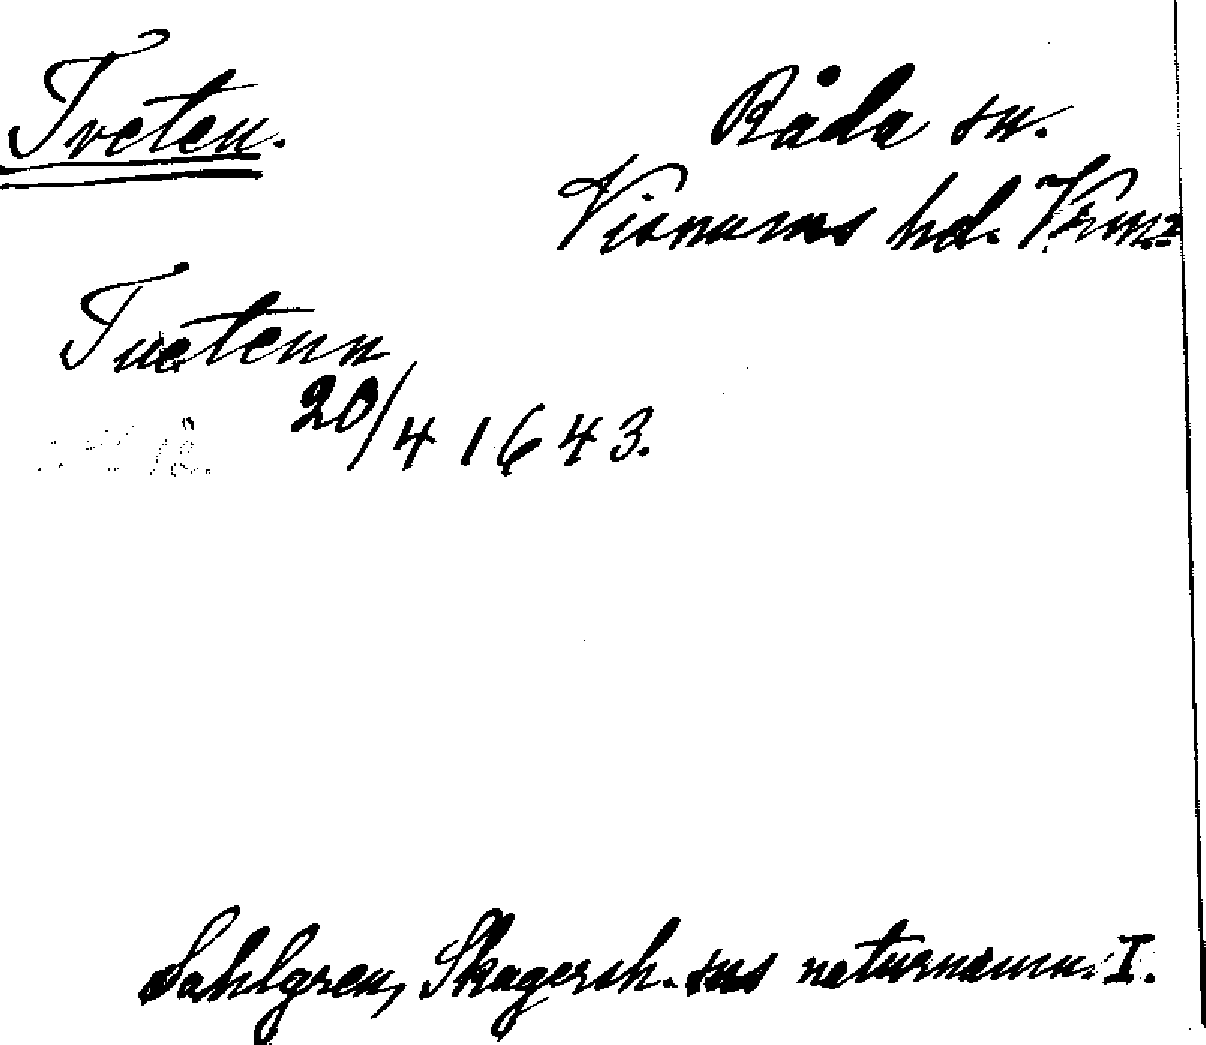 Tveten.
Råda sn.
Visnums hd. Vrml.
Tuetenn
20/4 1643.
Sahlgren, Skagersh. sns naturnamn I.